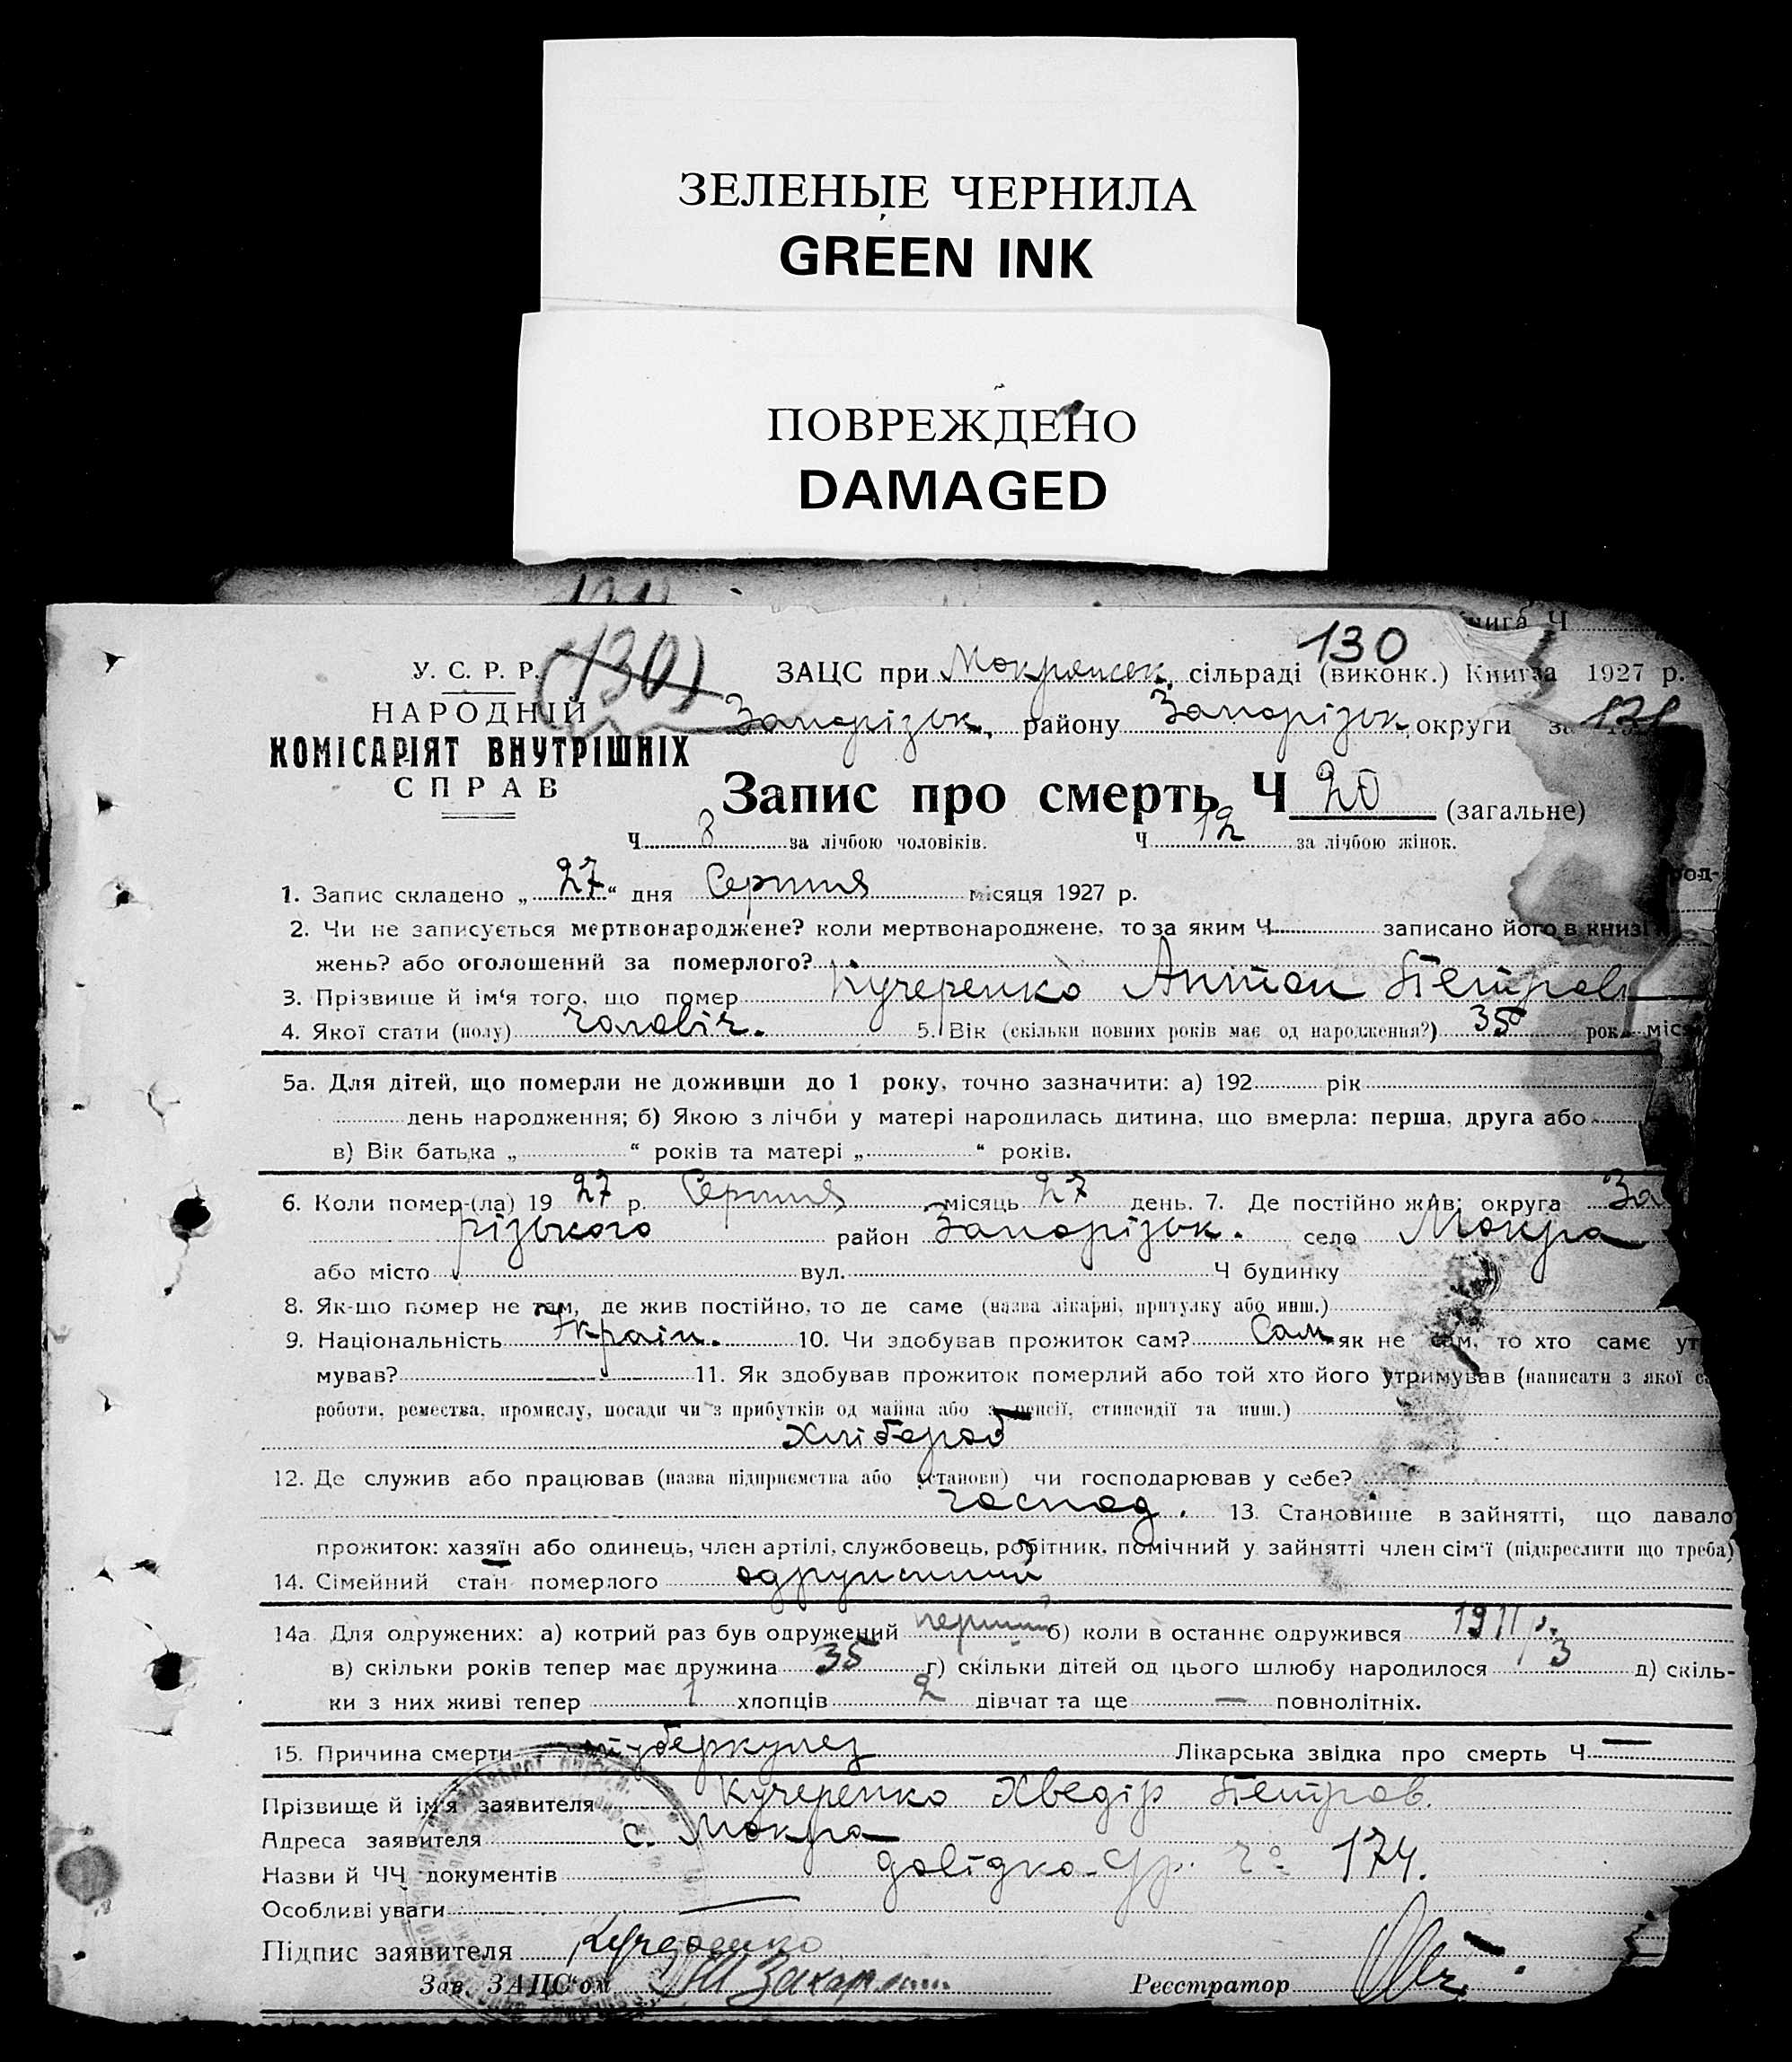 ЗЕЛЕНЫЕ ЧЕРНИЛА
GREEN INK
ПОВРЕЖДЕНО
DAMAGED
нига Ч
(130)
130
У. С. Р. Р.
ЗАЦС при Мокрянськ. сільраді (виконк.) Книга 1927 р.
НАРОДНІЙ
Запорізьк. району Запорізьк. округи за 131
КОМІСАРІЯТ ВНУТРІШНІХ
СПРАВ
Запис про смерть Ч 20 (загальне)
Ч 8 за лічбою чоловіків. Ч 12 за лічбою жінок.
1. Запис складено „ 27 “ дня Серпня місяця 1927 р.
2. Чи не записується мертвонароджене? коли мертвонароджене, то за яким Ч записано його в книзі
жень? або оголошений за померлого?
3. Прізвище й ім‘я того, що помер Кучеренко Антон Петров
4. Якої стати (полу) чоловіч. 5. Вік (скільки повних років має од народження?) 35 рок. міся
5а. Для дітей, що померли не доживши до 1 року, точно зазначити: а) 192 рік
день народження; б) Якою з лічби у матері народилась дитина, що вмерла: перша, друга або
в) Вік батька „ “ років та матері „ “ років.
6. Коли помер-(ла) 19 27 р. Серпня місяць 27 день. 7. Де постійно жив: округа За
різького район Запорізьк. село Мокра
або місто вул. Ч будинку
8. Як-що помер не там, де жив постійно, то де саме (назва лікарні, притулку або инш.)
9. Національність Україн. 10. Чи здобував прожиток сам? Сам як не сам, то хто саме ут
мував? 11. Як здобував прожиток померлий або той хто його утримував (написати з якої са
роботи, ремества, промислу, посади чи з прибутків од майна або з пенсії, стипендії та инш.)
Хлібороб
12. Де служив або працював (назва підприємства або установи) чи господарював у себе?
господ. 13. Становище в зайнятті, що давало
прожиток: хазяїн або одинець, член артілі, службовець, робітник, помічний у зайнятті член сім‘ї (підкреслити що треба)
14. Сімейний стан померлого одружений
14а Для одружених: а) котрий раз був одружений перший б) коли в останнє одружився 1911 р.
в) скільки років тепер має дружина 35 г) скільки дітей од цього шлюбу народилося 3 д) скіль-
ки з них живі тепер 1 хлопців 2 дівчат та ще — повнолітніх.
15. Причина смерти туберкулез Лікарська звідка про смерть Ч —
Прізвище й ім‘я заявителя Кучеренко Хведір Петров.
Адреса заявителя с. Мокра
Назви й ЧЧ документів довідка 174.
Особливі уваги —
Підпис заявителя Кучеренко
Зав. ЗАЦС‘ом
Реєстратор